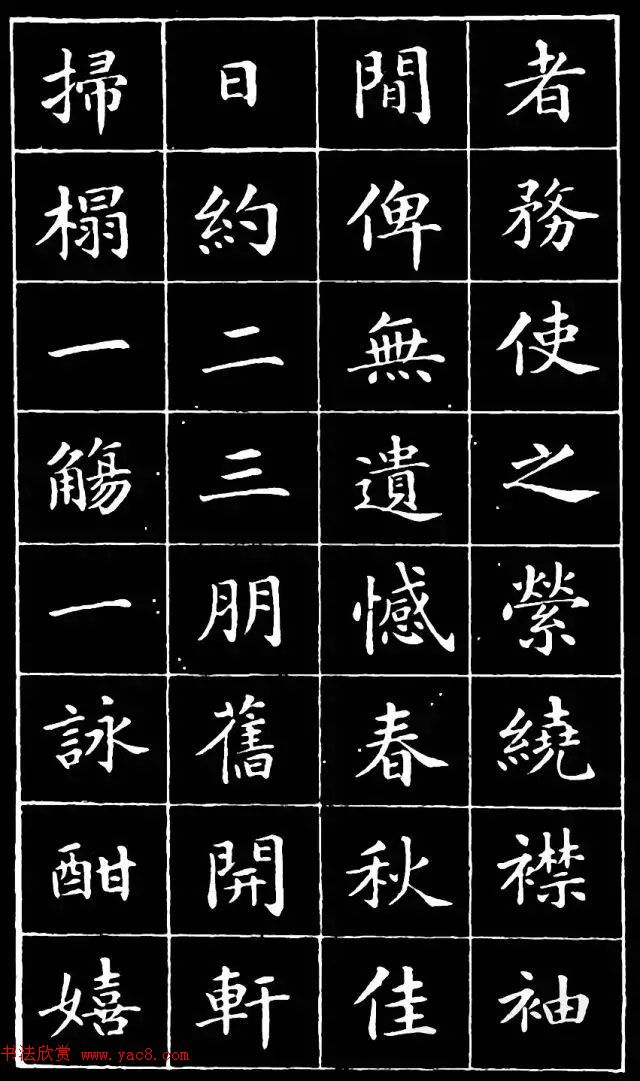 者務使之縈繞襟袖
間俾無遺憾春秋佳
日約二三朋舊開軒
掃榻一觴一詠酣嬉
书法欣赏 www.yac8.com